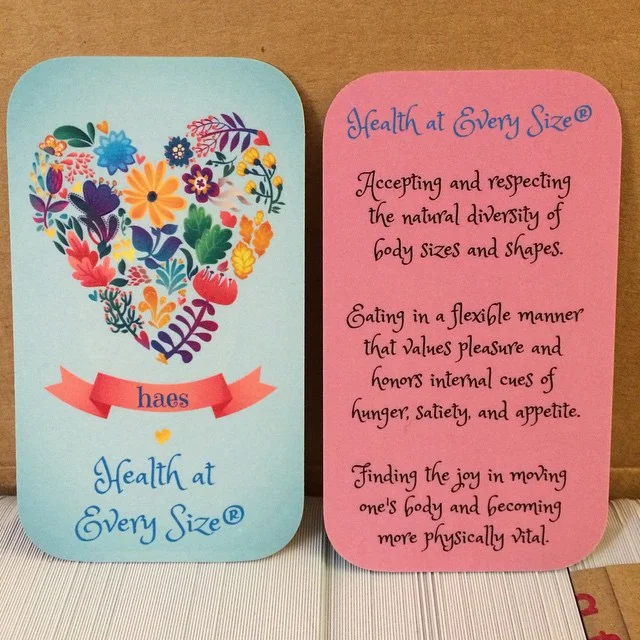 haes
Health at
Every Size®
Health at Every Size®
Accepting and respecting
the natural diversity of
body sizes and shapes.
Eating in a flexible manner
that values pleasure and
honors internal cues of
hunger, satiety, and appetite.
Finding the joy in moving
one's body and becoming
more physically vital.